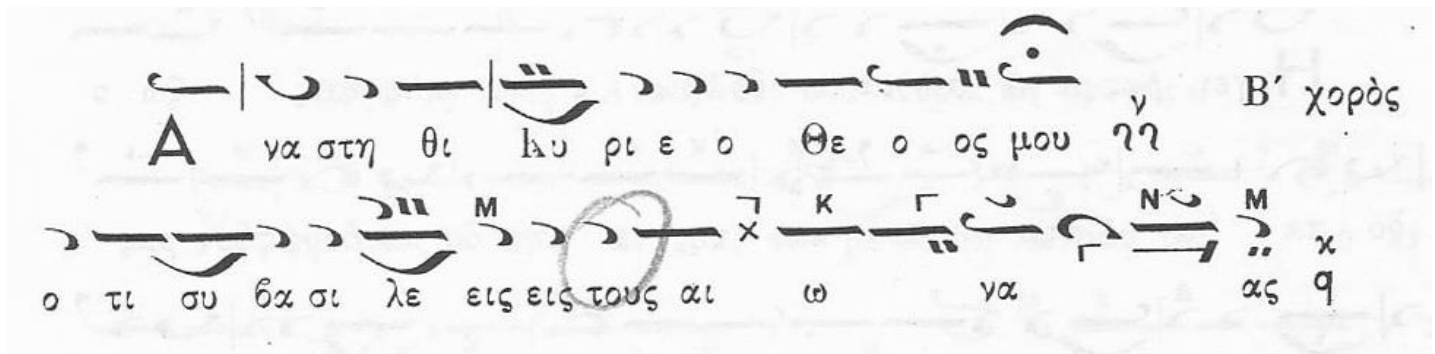 Β΄ χορὸς
Α να στη θι Κυ ρι ε ο Θε ο ος μου
Μ Κ Γ Ν Μ
ο τι συ βα σι λε εις εις τους αι ω να ας